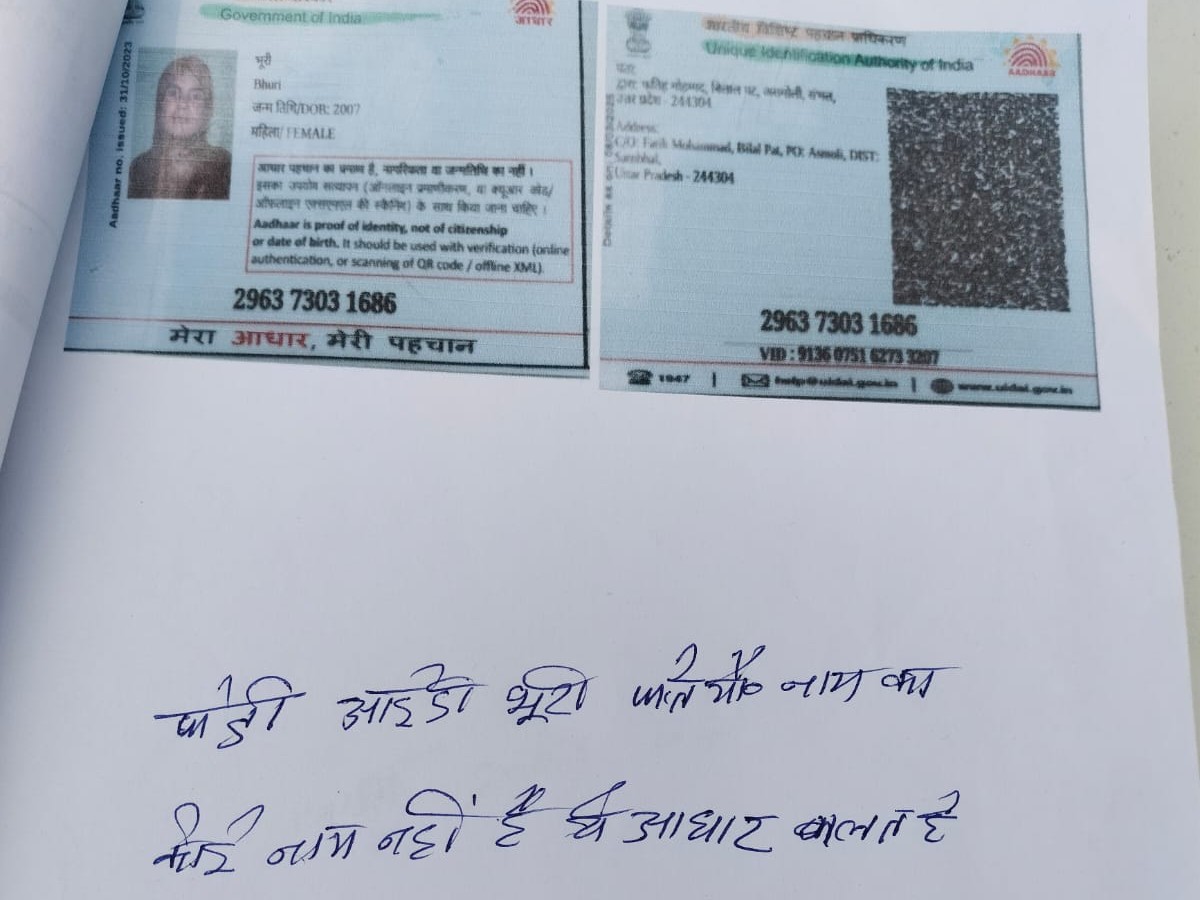 Government of India
आधार
Aadhaar no. issued: 31/10/2023
भूरी
Bhuri
जन्म तिथि/DOB: 2007
महिला/ FEMALE
आधार पहचान का प्रमाण है, नागरिकता या जन्मतिथि का नहीं ।
इसका उपयोग सत्यापन (ऑनलाइन प्रमाणीकरण, या क्यूआर कोड/
ऑफलाइन एक्सएमएल की स्कैनिंग) के साथ किया जाना चाहिए ।
Aadhaar is proof of identity, not of citizenship
or date of birth. It should be used with verification (online
authentication, or scanning of QR code / offline XML).
2963 7303 1686
मेरा आधार, मेरी पहचान
भारतीय विशिष्ट पहचान प्राधिकरण
Unique Identification Authority of India
AADHAAR
पता:
मोहम्मद, बिलाल पट, संभल,
उत्तर प्रदेश - 244304
Address:
C/O: Mohammad, Bilal Pat, PO: Asmoli, DIST:
Sambhal,
Uttar Pradesh - 244304
Details as on:
2963 7303 1686
VID : 9136 0751 6273 3207
1947 | help@uidai.gov.in | www.uidai.gov.in
आईडी भूरी नाम का
कोई नाम नहीं है ये आधार है